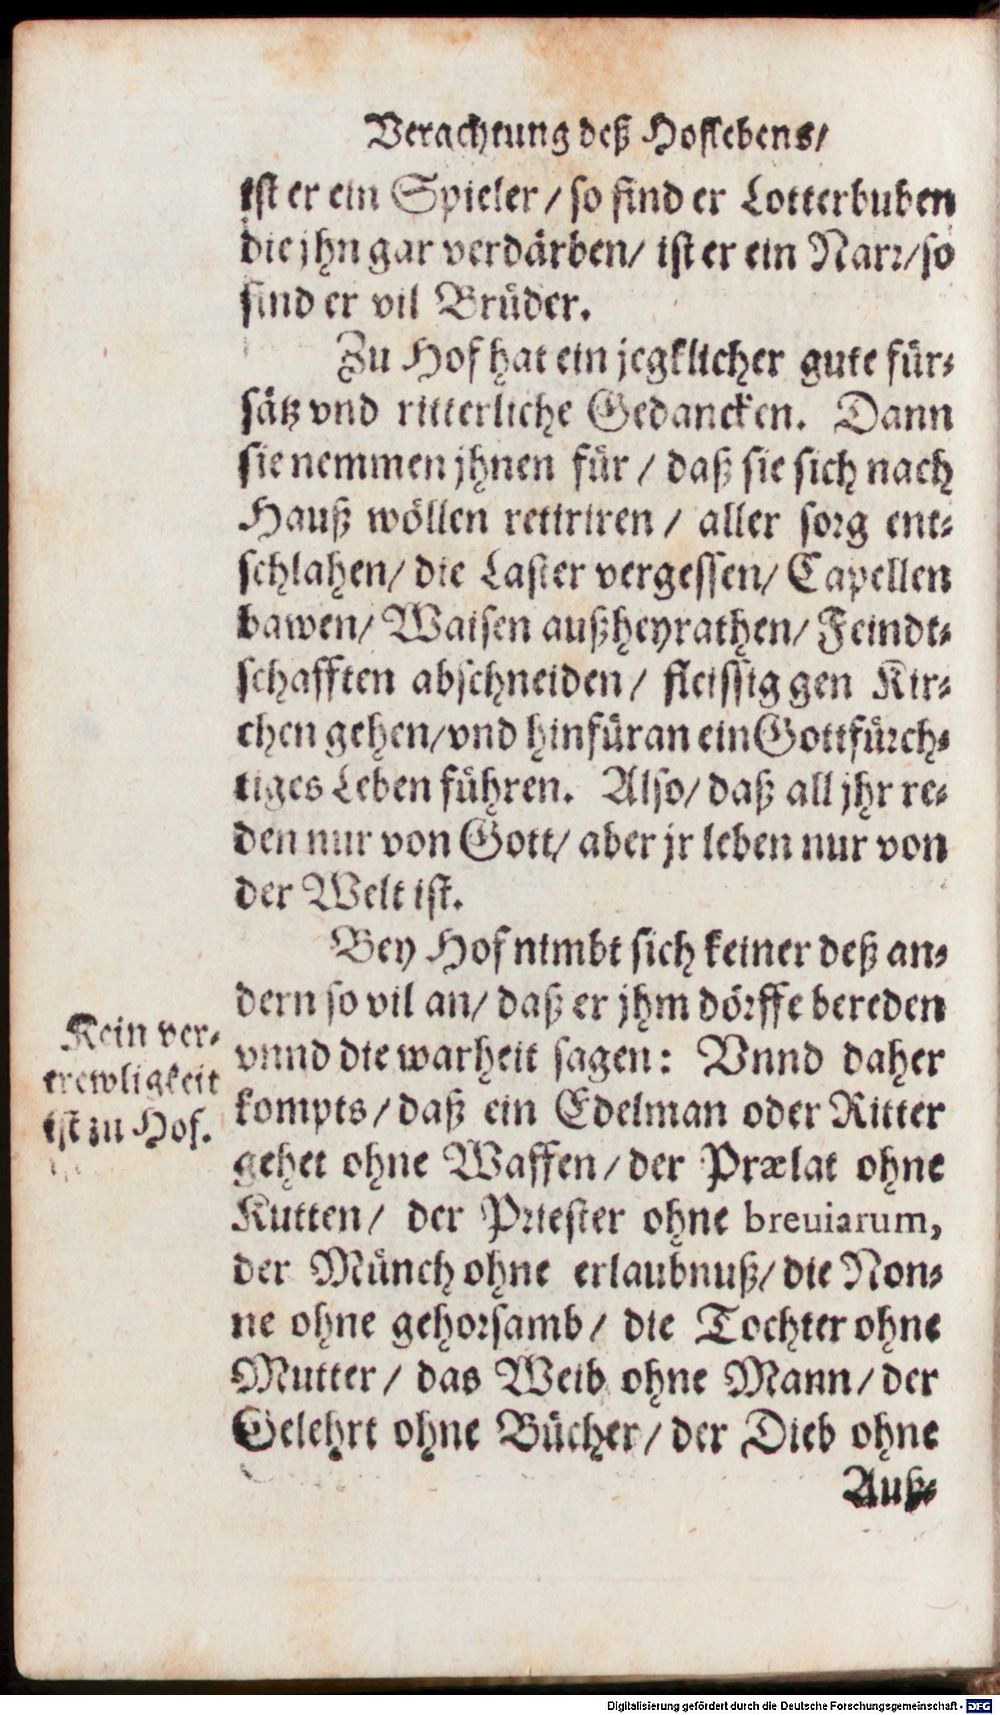 Verachtung deß Hoflebens/
ist er ein Spieler / so find er Lotterbuben
die jhn gar verdärben/ ist er ein Narr/so
find er vil Brüder.
Zu Hof hat ein jegklicher gute für-
sätz vnd ritterliche Gedancken. Dann
sie nemmen jhnen für / daß sie sich nach
Hauß wöllen retiriren / aller sorg ent-
schlahen/ die Laster vergessen/ Capellen
bawen/ Waisen außheyrathen/ Feindt-
schafften abschneiden / fleissig gen Kir-
chen gehen/vnd hinfüran ein Gottfürch-
tiges Leben führen. Also/ daß all jhr re-
den nur von Gott/ aber jr leben nur von
der Welt ist.
Bey Hof nimbt sich keiner deß an-
dern so vil an/ daß er jhm dörffe bereden
vnnd die warheit sagen: Vnnd daher
kompts/ daß ein Edelman oder Ritter
gehet ohne Waffen / der Prælat ohne
Kutten/ der Priester ohne breuiarum,
der Münch ohne erlaubnuß/ die Non-
ne ohne gehorsamb / die Tochter ohne
Mutter / das Weib ohne Mann / der
Gelehrt ohne Bücher / der Dieb ohne
Auß-
Kein ver-
trewligkeit
ist zu Hof.
Digitalisierung gefördert durch die Deutsche Forschungsgemeinschaft - DFG